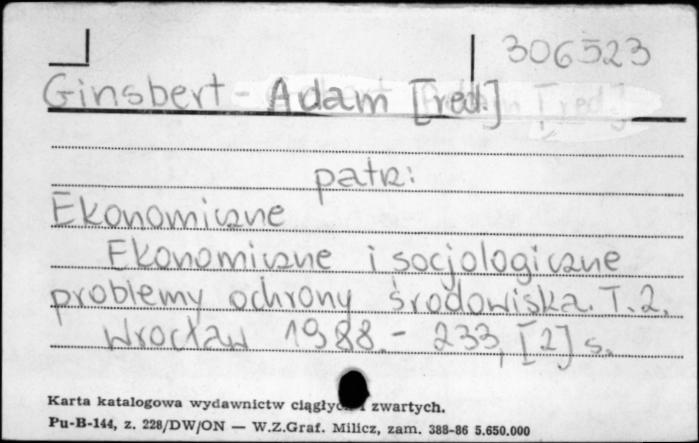 306523
Ginsbert - Adam [red.]
patrz:
Ekonomiczne
Ekonomiczne i socjologiczne
problemy ochrony środowiska. T. 2.
Wrocław 1988. - 233, [2] s.
Karta katalogowa wydawnictw ciągłych i zwartych.
Pu-B-144, z. 228/DW/ON — W.Z.Graf. Milicz, zam. 388-86 5.650.000